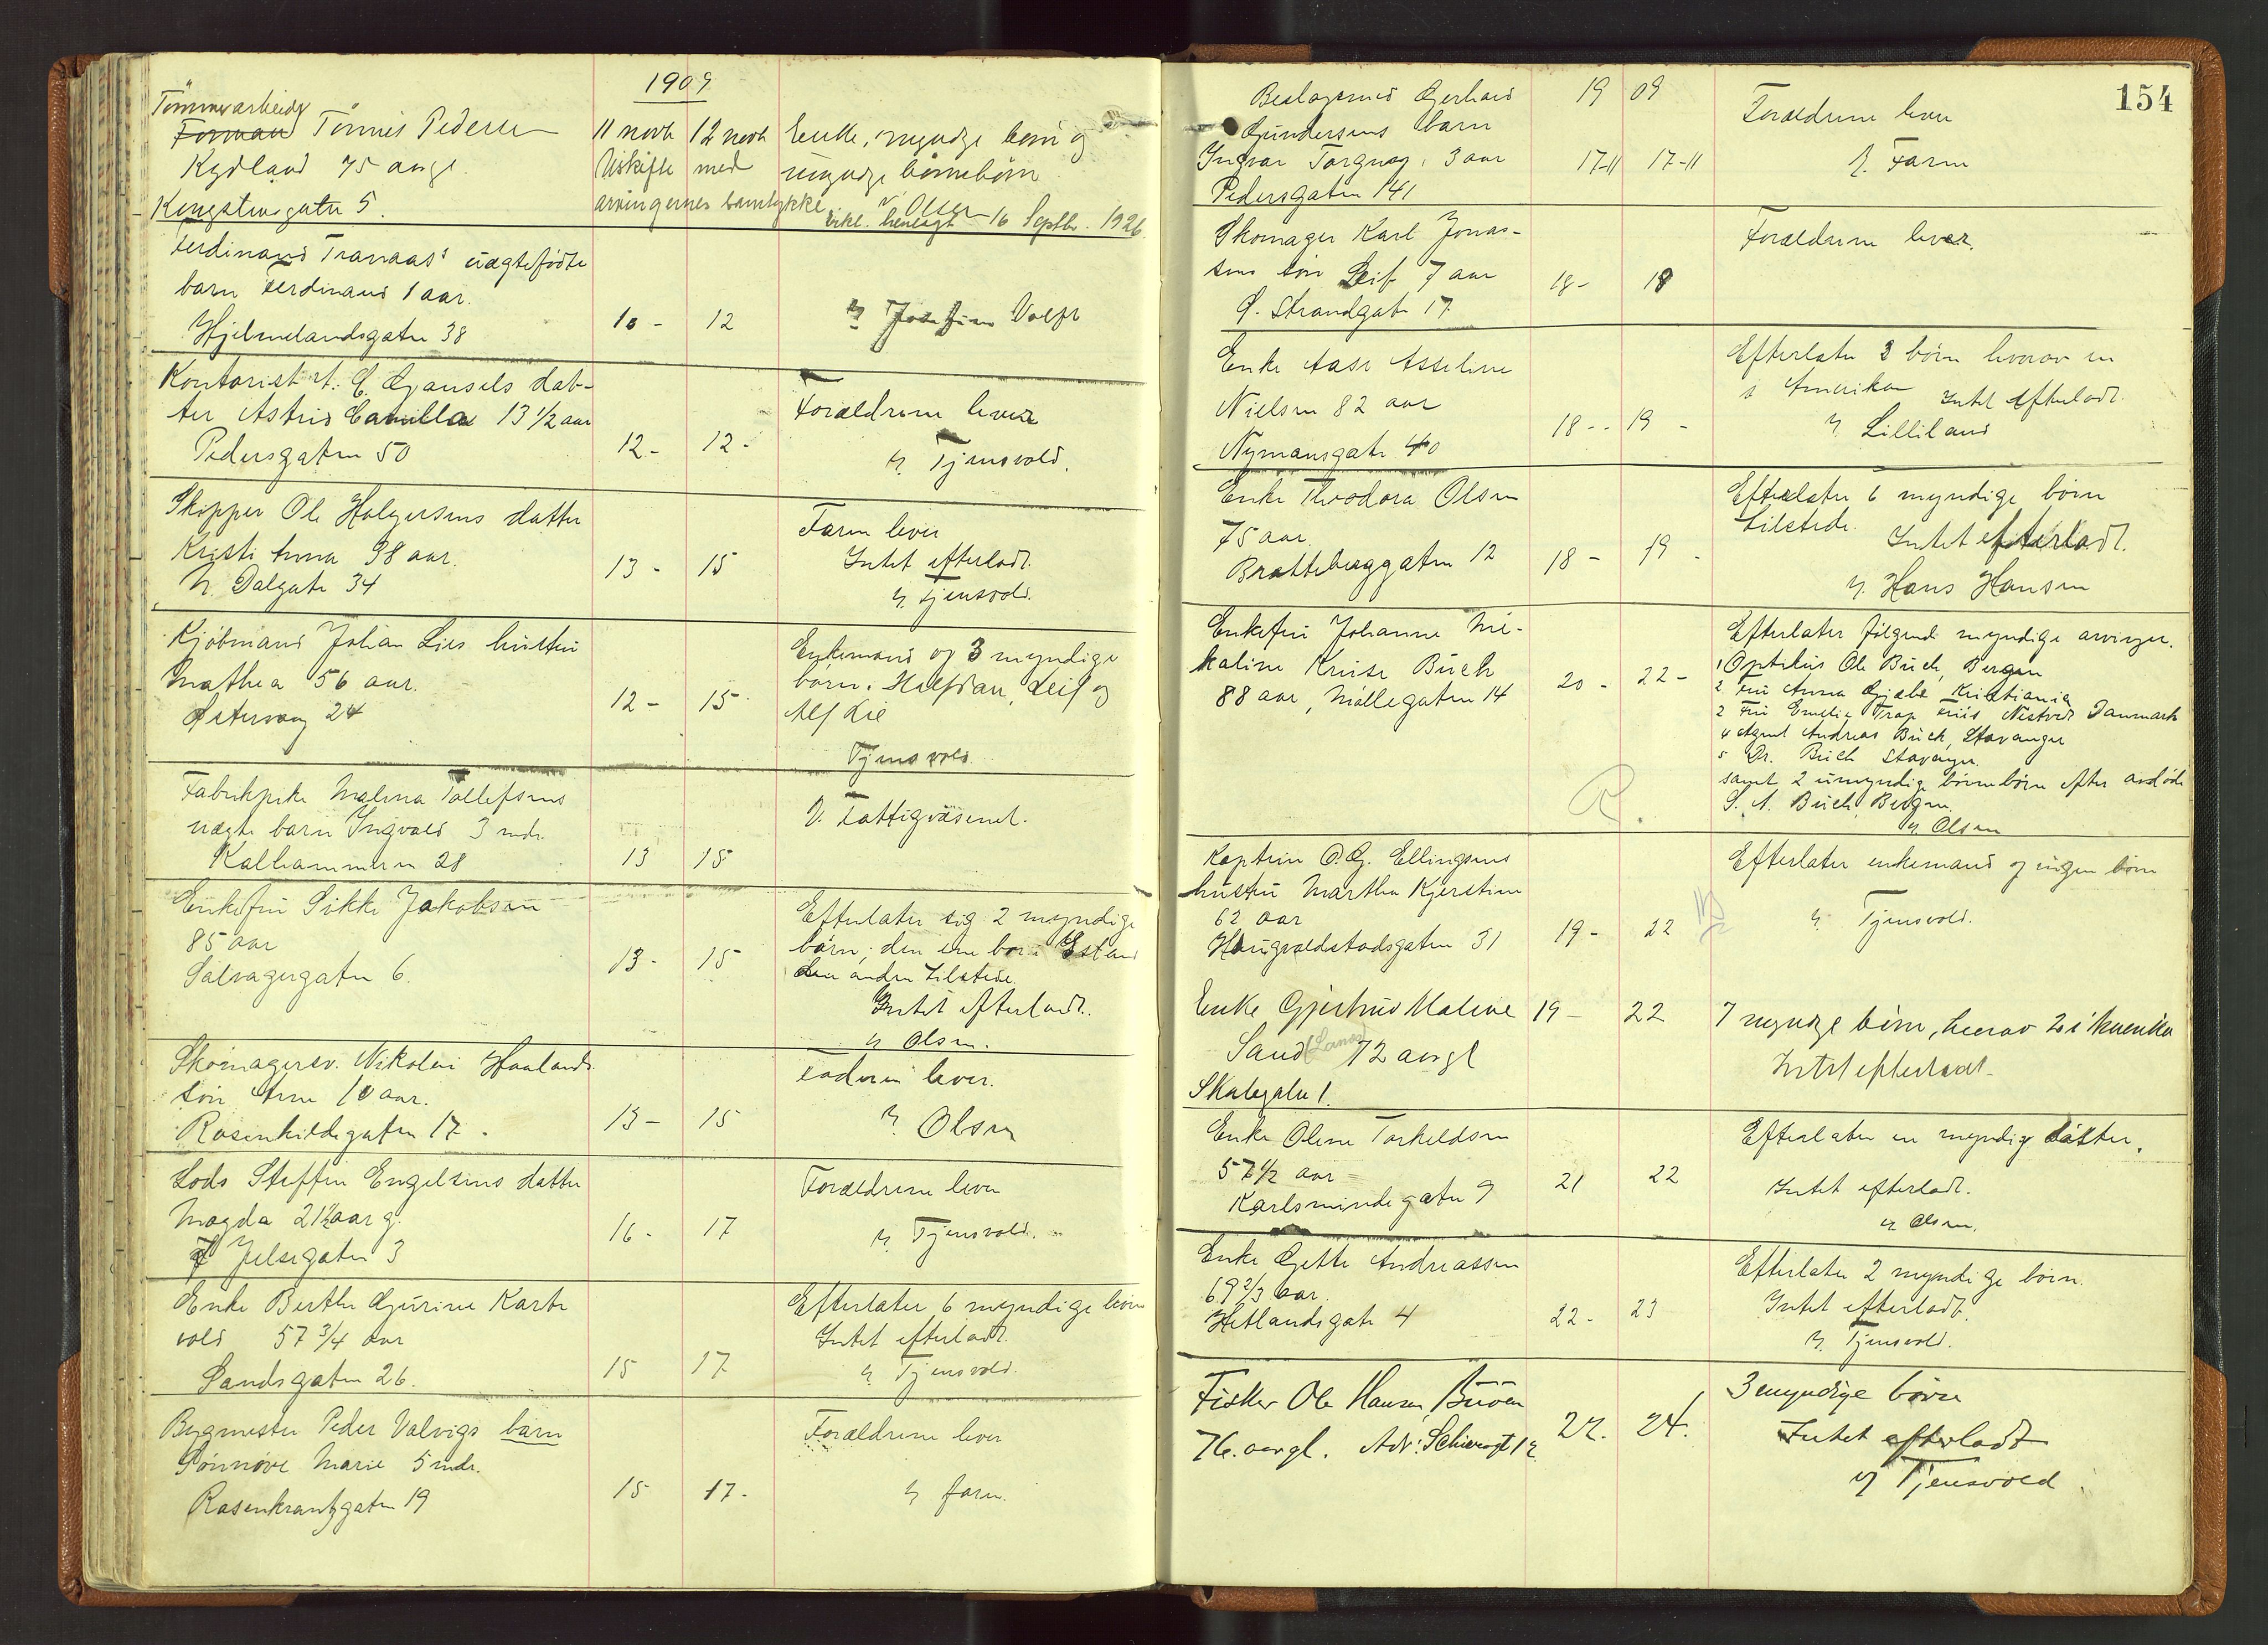 1909
Tømmerarbeider
Forman Tønnes Pedersen
Kydland 75 aargl.
Kongsteinsgaten 5.
11 novb 12 novb
Uskifte med
arvingernes samtykke
Enke, myndge børn og
umyndge børnebørn
v Olsen
16 Septbr. 1926.
Ferdinand Tranaas' uægtefødte
barn Ferdinand 1 aar.
Hjelmelandsgaten 38
10 - 12
v Josefine Volft
Kontorist A. C. Gjausels dat-
ter Astrid Camilla 13 1/2 aar
Pedersgaten 50
12 - 12 -
Forældrene lever
v. Tjensvold.
Skipper Ole Holgersens datter
Kristi Anna 38 aar.
N. Dalgate 34
13 - 15
Faren lever
Intet efterladt.
v. Tjensvold.
Kjøbmand Johan Lies hustru
Mathea 56 aar.
Østervaag 24
12 - 15
Enkemand og 3 myndige
børn. Halfdan, Leif og
Alf Lie
Tjensvold
Fabrikpike Malena Tollefsens
uægte barn Ingvald 3 mdr.
Kalhammeren 28
13 15
V. Fattigvæsenet.
Enkefru Sikke Jakobsen
85 aar
Salvagergaten 6.
13 - 15
Efterlater sig 2 myndige
børn; den ene bor i Estland
den anden tilstede.
Intet efterladt.
v Olsen.
Skomagersv. Nikolai Haalands
søn Arne 10 aar.
Rosenkildegaten 17.
13 - 15
Faderen lever.
v. Olsen
Lods Steffen Engelsens datter
Magda 21 1/2 aar g.
Jelsegaten 3
16 - 17
Forældrene lever
v. Tjensvold.
Enke Berthe Gurine Karte
vold 57 3/4 aar
Sandsgaten 26.
15 17
Efterlater 6 myndige børn
Intet efterladt.
v. Tjensvold.
Bygmester Peder Valvigs barn
Sønnøve Marie 5 mdr.
Rosenkrantzgaten 19
15 17 -
Forældrene lever
v faren.
154
19 09
Beslagsmed Gerhard
Gundersens barn
Ingvar Torgny, 3 aar
Pedersgaten 141
17-11 17-11
Forældrene lever
v. Faren
Skomager Karl Jonas-
sens søn Leif 7 aar
Ø. Strandgate 17
18 - 18
Forældrene lever.
Enke Aase Asseline
Nielsen 82 aar
Nymansgate 40
18 - - 19 -
Efterlater 3 børn hvorav en
i Amerika Intet efterladt.
v. Lilliland
Enke Theodora Olsen
75 aar.
Bratteberggaten 12
18 - 19 -
Efterlater 6 myndige børn
tilstede. Intet efterladt.
v. Hans Hansen
Enkefru Johanne Mi-
kaline Kruse Buch
88 aar, Møllegaten 14
20 - 22 -
R.
Efterlater følgende myndige arvinger.
1 Optikus Ole Buch, Bergen
2 Fru Anna Kristiania
2 Fru Emelie Trap Friis Nestved Danmark
4 Agent Andreas Buch, Stavanger
5 Dr. Buch Stavanger.
samt 2 umyndige børnebørn efter avdøde
S. A. Buch, Bergen.
v Olsen
Kaptein O. G. Ellingsens
hustru Martha Kjerstine
62 aar
Haugvaldstadsgaten 31
19 - 22
Efterlater enkemand og ingen børn
v. Tjensvold.
Enke Gjertrud Malene
Sand (Lane) 72 aargl
Skolegaten 1.
19 - 22
7 myndge børn, hvorav 2 i Amerika
Intet efterladt
Enke Olene Torkeldsen
57 1/2 aar
Karlsmindegaten 9
21 22
Efterlater en myndig datter.
Intet efterladt.
v Olsen.
Enke Gjette Andreassen
69 2/3 aar.
Hetlandsgate 4
22 - 23
Efterlater 2 myndige børn.
Intet efterladt.
v. Tjensvold.
Fisker Ole Hansen Buøen
76. aargl. Adr:
22. 24.
3 myndige børn
Intet efterladt
v Tjensvold